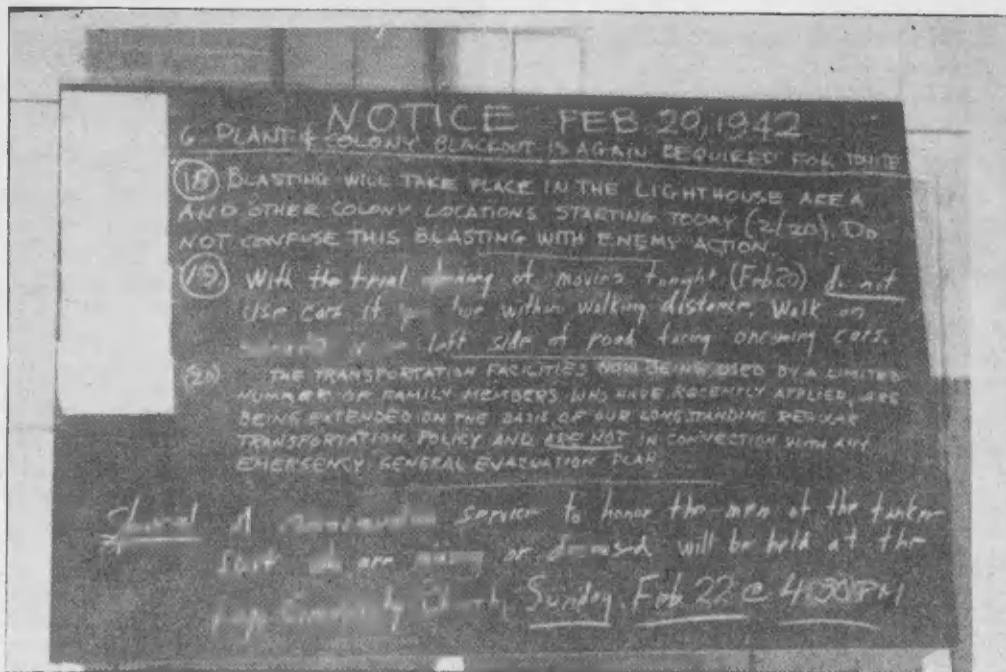 NOTICE FEB 20, 1942
6 PLANT & COLONY BLACKOUT IS AGAIN REQUIRED FOR TONITE
(18) BLASTING WILL TAKE PLACE IN THE LIGHTHOUSE AREA
AND OTHER COLONY LOCATIONS STARTING TODAY (2/20). DO
NOT CONFUSE THIS BLASTING WITH ENEMY ACTION.
(19) With the of movies tonight (Feb 20) do not
Use cars if live within walking distance. Walk on
left side of road facing oncoming cars.
(20) THE TRANSPORTATION FACILITIES NOW BEING USED BY A LIMITED
NUMBER OF FAMILY MEMBERS WHO HAVE RECENTLY APPLIED, ARE
BEING EXTENDED ON THE BASIS OF OUR LONGSTANDING REGULAR
TRANSPORTATION POLICY AND ARE NOT IN CONNECTION WITH ANY
EMERGENCY GENERAL EVACUATION PLAN
A service to honor the men of the tanker
are or will be held at the
Sunday, Feb 22 @ 4:30 PM